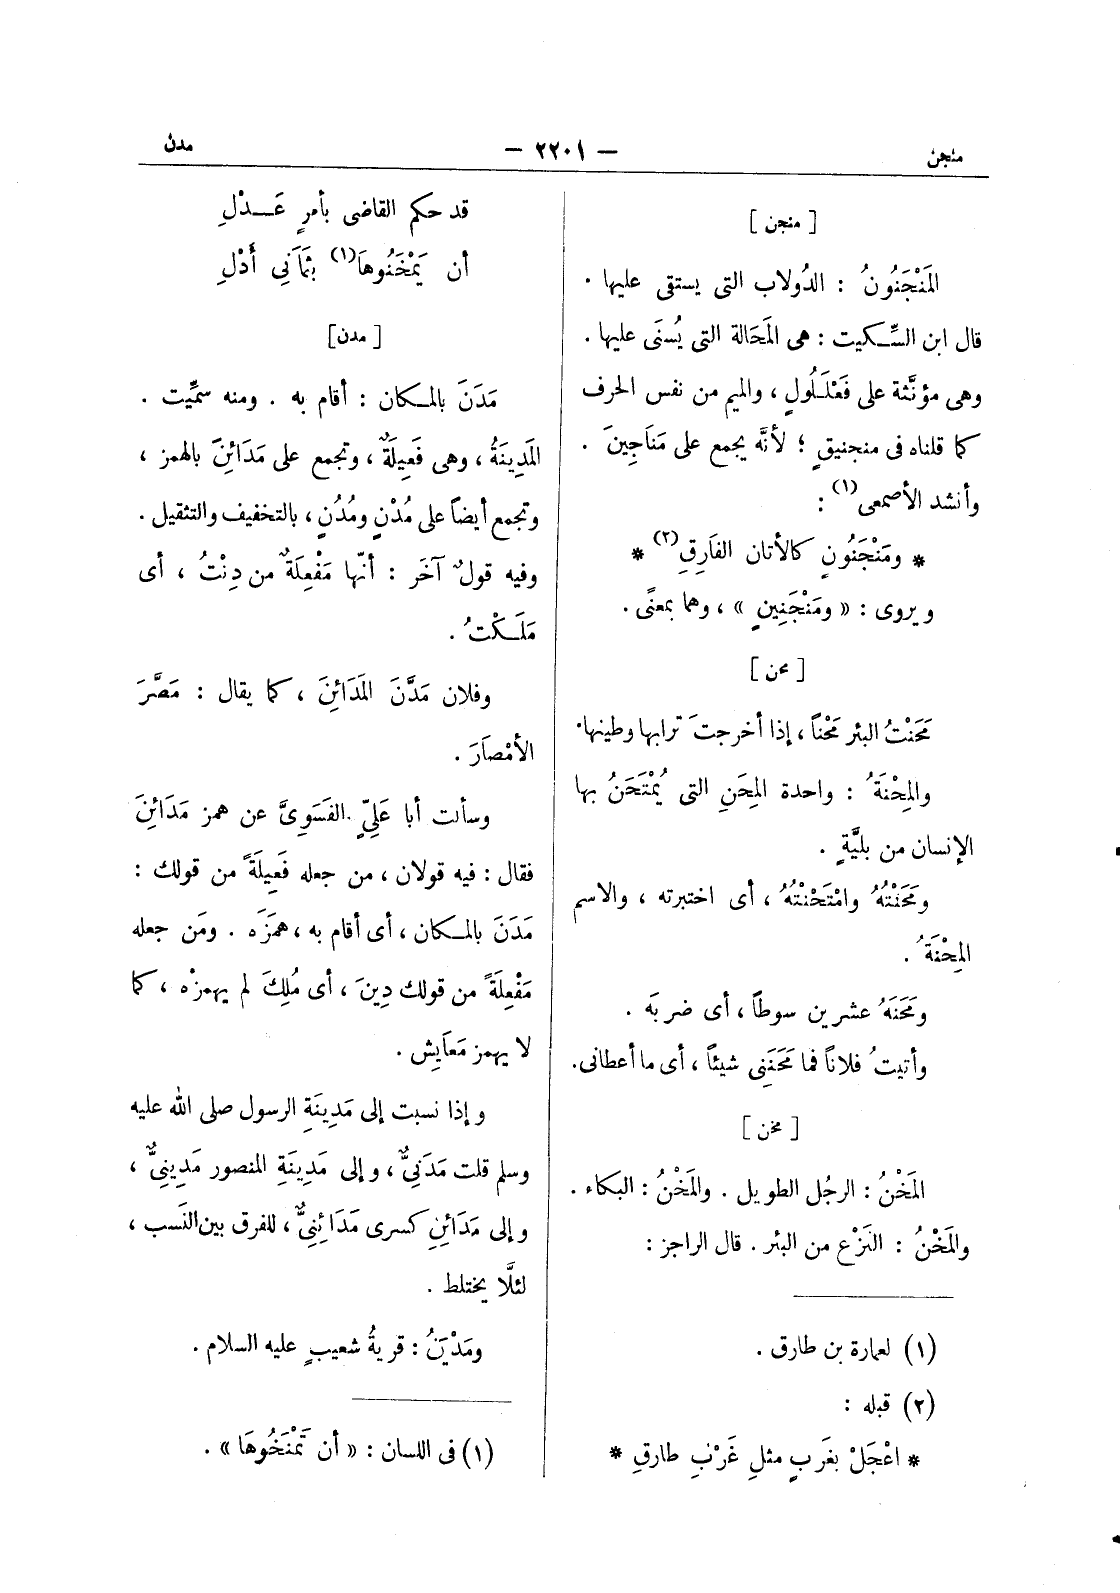 منجن
— ٢٢٠١ —
مدن
[ منجن ]
المَنْجَنُونُ : الدُولاب التى يستقى عليها .
قال ابن السِّكيت : هى المَحَالة التى يُسنَى عليها .
وهى مؤنَّثة على فَعْلَلُولٍ ، والميم من نفس الحرف
كما قلناه فى منجنيقٍ ؛ لأنَّه يجمع على مَنَاجِينَ .
وأنشد الأصمعى (١) :
* ومَنْجَنُونٍ كالأتان الفَارِقِ (٢) *
ويروى : « ومَنْجَنِينٍ » ، وهما بمعنًى .
[ محن ]
مَحَنْتُ البئر مَحْناً ، إذا أخرجتَ ترابها وطينها .
والمِحْنَةُ : واحدة المِحَنِ التى يُمْتَحَنُ بها
الإنسان من بليَّةٍ .
ومَحَنْتُهُ وامْتَحَنْتُهُ ، أى اختبرته ، والاسم
المِحْنَةُ .
ومَحَنَهُ عشرين سوطاً ، أى ضربَه .
وأتيتُ فلاناً فما مَحَنَنِى شيئاً ، أى ما أعطانى .
[ مخن ]
المَخْنُ : الرجُل الطويل . والمَخْنُ : البكاء .
والمَخْنُ : النَزْع من البئر . قال الراجز :
(١) لعمارة بن طارق .
(٢) قبله :
* اعْجَلْ بغَربٍ مثلِ غَرْبِ طارقِ *
قد حكم القاضى بأمرٍ عَـدْلِ
أن يَمْخَنُوهَا (١) بثمَانِى أَدْلِ
[ مدن ]
مَدَنَ بالمكان : أقام به . ومنه سمِّيت .
المَدِينَةُ ، وهى فَعِيلَةٌ ، وتجمع على مَدَائِنَ بالهمز ،
وتجمع أيضاً على مُدْنٍ ومُدُنٍ ، بالتخفيف والتثقيل .
وفيه قولٌ آخَر : أنّها مَفْعِلَةٌ من دِنْتُ ، أى
مَلَـكْتُ .
وفلان مَدَّنَ المَدَائِنَ ، كما يقال : مَصَّرَ
الأمْصَارَ .
وسألت أبا عَلِىٍّ الفَسَوِىَّ عن همز مَدَائِنَ
فقال : فيه قولان ، من جعله فَعِيلَةً من قولك :
مَدَنَ بالمكان ، أى أقام به ، همَزَه . ومَن جعله
مَفْعِلَةً من قولك دِينَ ، أى مُلِكَ لم يهمزْه ، كما
لا يهمز مَعَايِش .
وإذا نسبت إلى مَدِينَةِ الرسول صلى الله عليه
وسلم قلت مَدَنِىٌّ ، وإلى مَدِينَةِ المنصور مَدِينِىٌّ ،
وإلى مَدَائِنِ كسرى مَدَائِنِىٌّ ، للفرق بين النَسب ،
لئلَّا يختلط .
ومَدْيَنُ : قريةُ شعيبٍ عليه السلام .
(١) فى اللسان : « أن تَمْنَخُوهَا » .